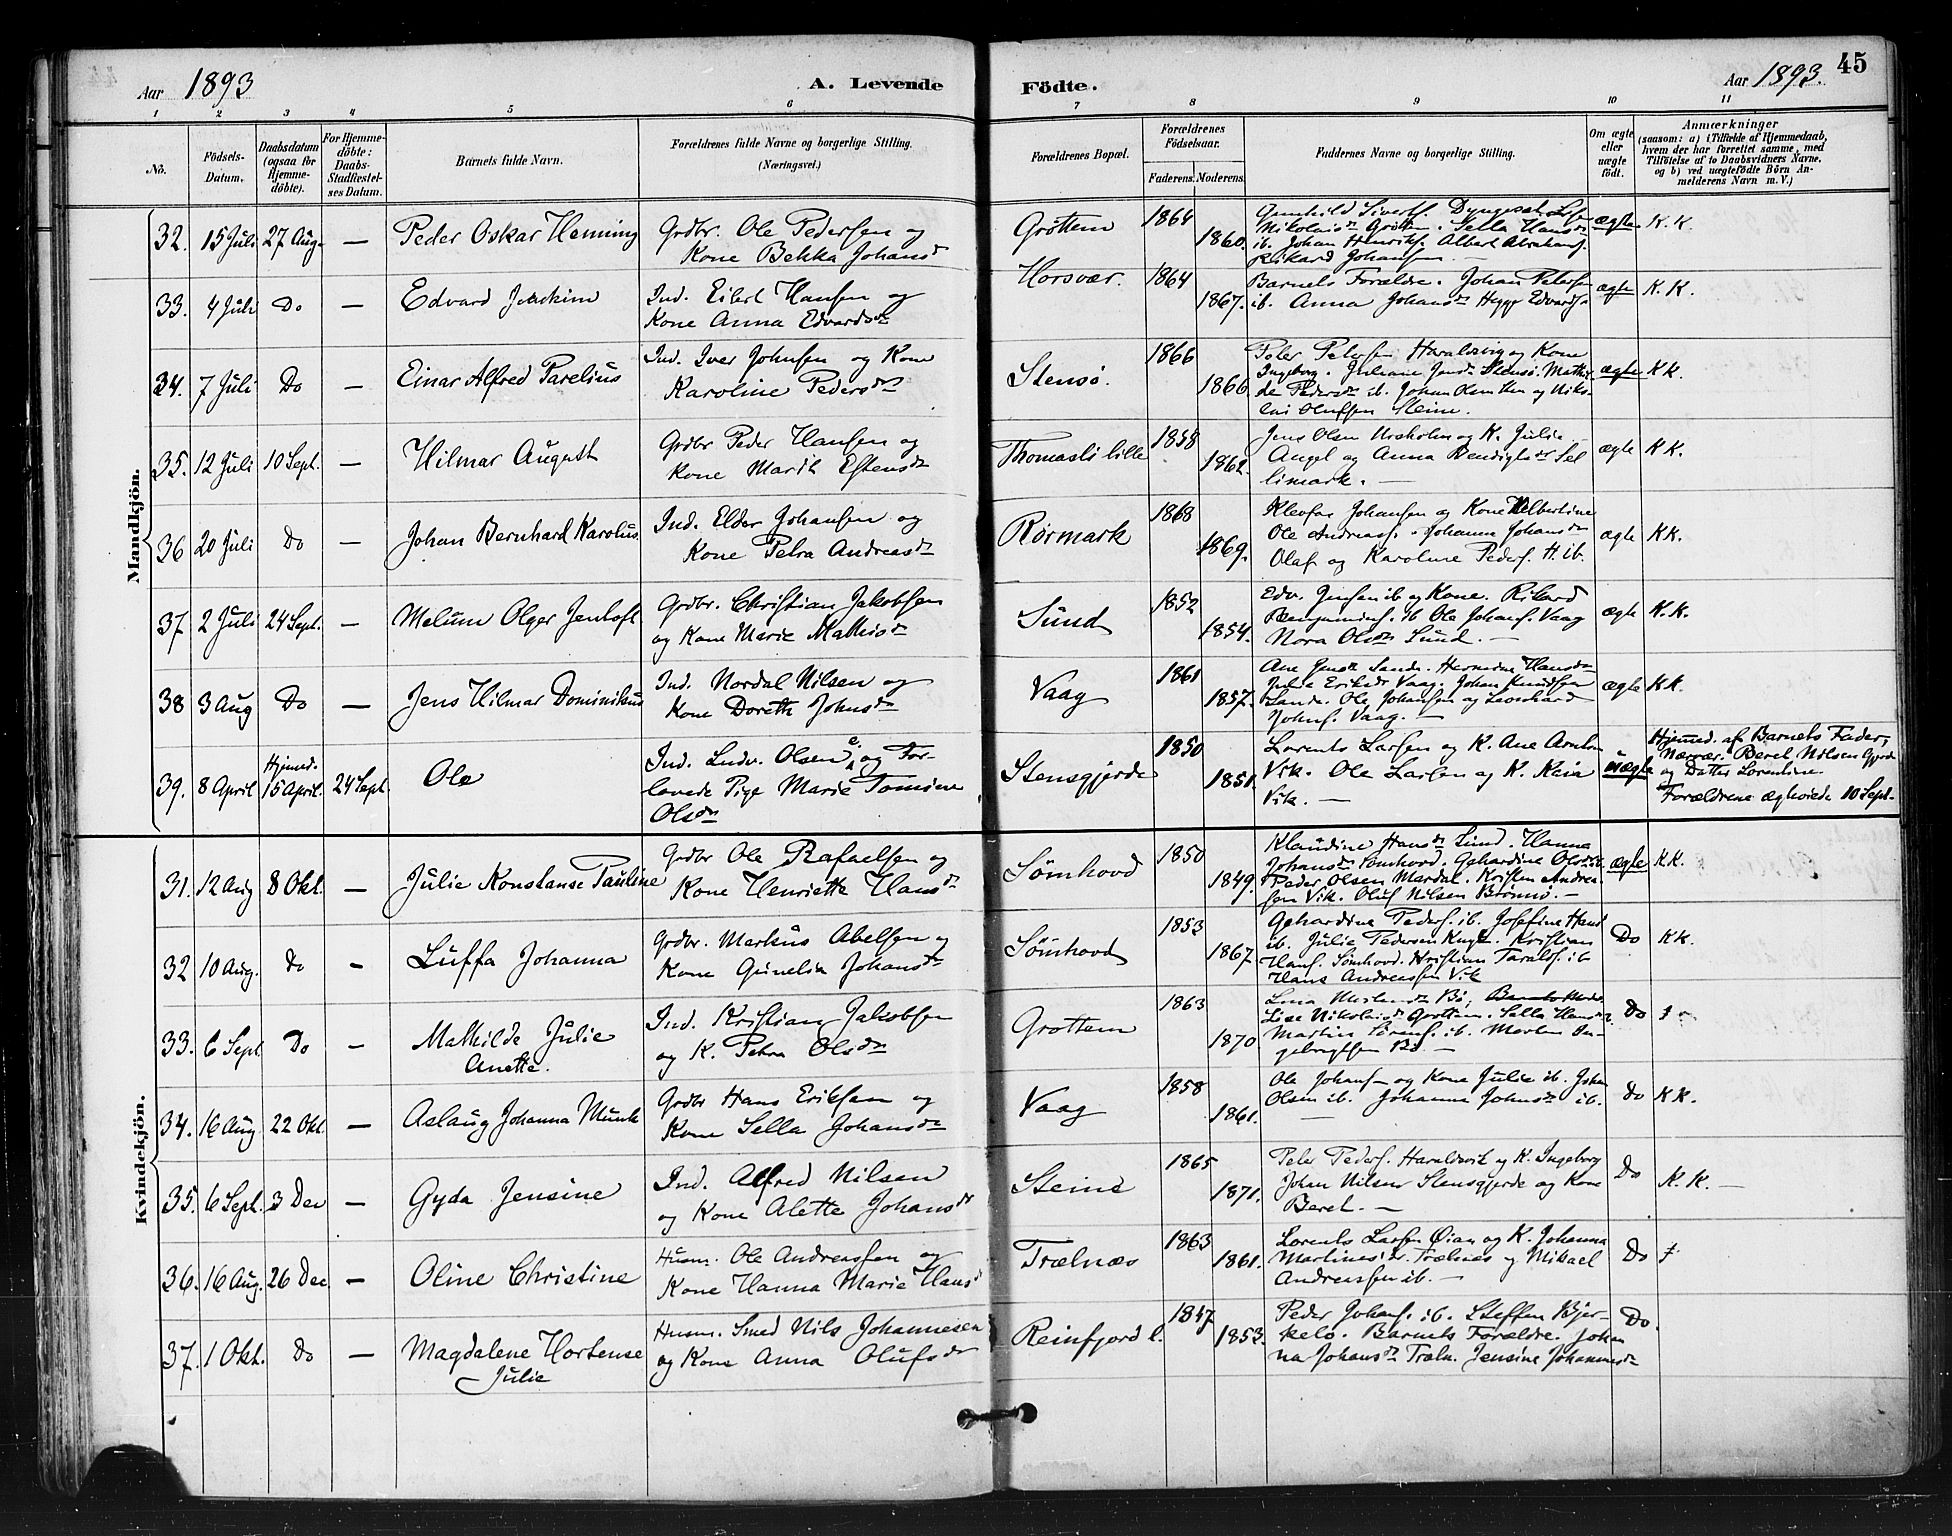 Aar 1893
A. Levende Födte.
Aar 1893.
45
1 2 3 4 5 6 7 8 9 10 11
No.
Födsels-Datum.
Daabsdatum (ogsaa for Hjemme-döbte).
For Hjemme-döbte: Daabs-Stadfæstel-ses Datum.
Barnets fulde Navn.
Forældrenes fulde Navne og borgerlige Stilling.
(Næringsvei.)
Forældrenes Bopæl.
Forældrenes Födselsaar.
Faderens. Moderens.
Faddernes Navne og borgerlige Stilling.
Om ægte eller uægte födt.
Anmærkninger
(saasom: a) i Tilfælde af Hjemmedaab,
hvem der har forrettet samme, med
Tilföielse af to Daabsvidners Navne.
og b) ved uægtefödte Börn An-
melderens Navn m. V.)
Mandkjön.
32. 15 Juli 27 Aug. — Peder Oskar Heming
Grdbr. Ole Pedersen og
Kone Bekka Johansdr
Gröttem 1864 1860.
Gunhild Sivertsdr.
Nikolaisdr Gröttem. Sella Hansdr
ib. Johan Henriks. Albert Abrahams.
Rikard Johansen —
ægte K. K.
33. 4 Juli Do — Edvard Joakim
Ind. Eilert Hansen og
Kone Anna Edvardsdr
Horsvær. 1864 1867.
Barnets Forældre. Johan Petersen
ib. Anna Johansdr Hegge Edvards.
ægte K. K.
34. 7 Juli Do — Einar Alfred Parelius
Ind. Iver Johnsen og Kone
Karoline Pedersdr
Stensö. 1866 1866.
Peter Petersen Haraldsvig og Kone
Ingeborg. Juliane Jensdr Stensö. Mathil-
de Pedersdr ib. Johan Olsen og Niko-
lai Olufsen Steine.
ægte K K.
35. 12 Juli 10 Sept. — Hilmar August
Grdbr Peder Hansen og
Kone Marit Estensdr
Thomasli lille 1858 1862.
Jens Olsen Ursholm og K. Julie —
Angel og Anna Bendigtsdr Sel
limark. —
ægte K K.
36 20 Juli Do — Johan Bernhard Karolus.
Ind. Elder Johansen og
Kone Petra Andreasdr
Rörmark 1868 1869.
Klevfas Johansen og Kone Albertine
Ole Andreass. Johanna Johansdr
Olaf og Karoline Peders. H. ib.
ægte KK.
37 2 Juli 24 Sept. — Melum Olger Jentoft
Grdbr. Christian Jakobsen
og Kone Marie Mathisdr
Sund 1852 1854.
Edv. Jensen ib og Kone. Rikard
Benjamins. ib Ole Johans. Vaag
Nora Olsdr Sund. —
ægte K.K.
38 3 Aug Do — Jens Hilmar Dominikus
Ind. Nordal Nilsen og
Kone Doreth Johnsdr
Vaag 1861 1857.
Ane Jensdr Sande. Hermine Hansdr
Julie Eriksdr Vaag. Johan Knudsen
Sande. Ole Johansen og Leonhard
Johns. Vaag. —
ægte KK.
39. 8 April Hjemed. 15 April. 24 Sept. Ole
Ind. Ludv. Olsen og For-
lovede Pige Marie Tomine
Olsdr
Stensgjerde 1850 1851.
Lorents Larsen og K. Ane
Vik. Ole Larsen og K. Kaia
Vik. —
uægte
Hjemed. af Barnets Fader,
Nærvær. Beret Nilsen Gjerde
og Datter Lorentine.
Forældrene ægteviede 10 Sept.
Kvindekjön.
31. 12 Aug 8 Okt. — Julie Konstanse Pauline
Grdbr Ole Rafaelsen og
Kone Henriette Hansdr
Sömhovd 1850 1849.
Klaudine Hansdr Sund. Hanna
Johansdr Sömhovd. Gehardine Olsdr ib.
Peder Olsen Mardal. Kristen Andrea-
sen Vik. Oluf Nilsen Brönnö. —
ægte KK.
32 10 Aug. do - Luffa Johanna
Grdbr. Markus Abelsen og
Kone Gunelia Johansdr
Sömhovd 1853 1867.
Gehardine Peders. ib. Josefine Hans
ib. Julie Pedersen. Kristian
Hans. Sömhovd. Kristian Taralds. ib
Hans Andreassen Vik
Do KK.
33. 6 Sept Do - Mathilde Julie
Anette.
Ind. Kristian Jakobsen
og K. Petra Olsdr
Grottem 1863 1870
Bö,
Lise Nikolaisdr Grottem. Sella Hansdr
Martin Sörens. ib. Morten In-
gebrigtsen Bö —
Do
34. 16 Aug. 22 Okt. — Aslaug Johanna Munk
Grdbr Hans Eriksen og
Kone Sella Johansdr
Vaag 1858 1861.
Ole Johans— og Kone Julie ib. Johan
Olsen ib. Johanna Johnsdr ib.
Do KK.
35. 6 Sept. 3 Dec — Gyda Jensine
Ind. Alfred Nilsen
og Kone Alette Johansdr
Steine 1865 1871.
Peter Peders. Haraldsvik og K. Ingeborg
Johan Nilsen Stensgjerde og Kone
Beret. —
Do K. K. —
36. 16 Aug. 26 Dec — Oline Christine
Husm. Ole Andreassen og
Kone Hanna Marie Hansdr
Trælnæs 1863 1861.
Lorents Larsen Öian og K. Johanna
Trælnes og Mikael
Andreassen ib. —
Do
37. 1 Okt. Do — Magdalene Hortense
Julie
Husm. Smed Nils Johannesen
og Kone Anna Olufsdr
Reinfjord l. 1847 1853.
Peder Johans. ib. Steffen Bjer-
kelo. Barnets Forældre. Johan
na Johansdr Træln. Jensine Johannesdr
Do.